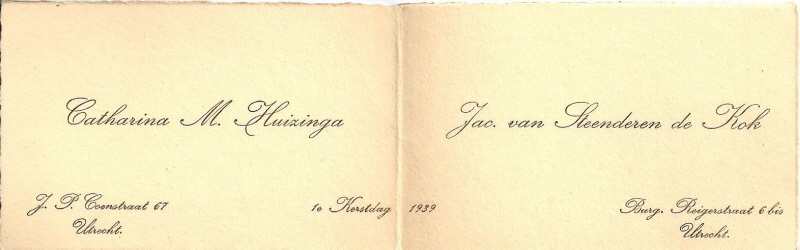 Catharina M. Huizinga
Jac. van Steenderen de Kok
J. P. Coenstraat 67
Utrecht.
1e Kerstdag 1939
Burg. Reigerstraat 6 bis
Utrecht.